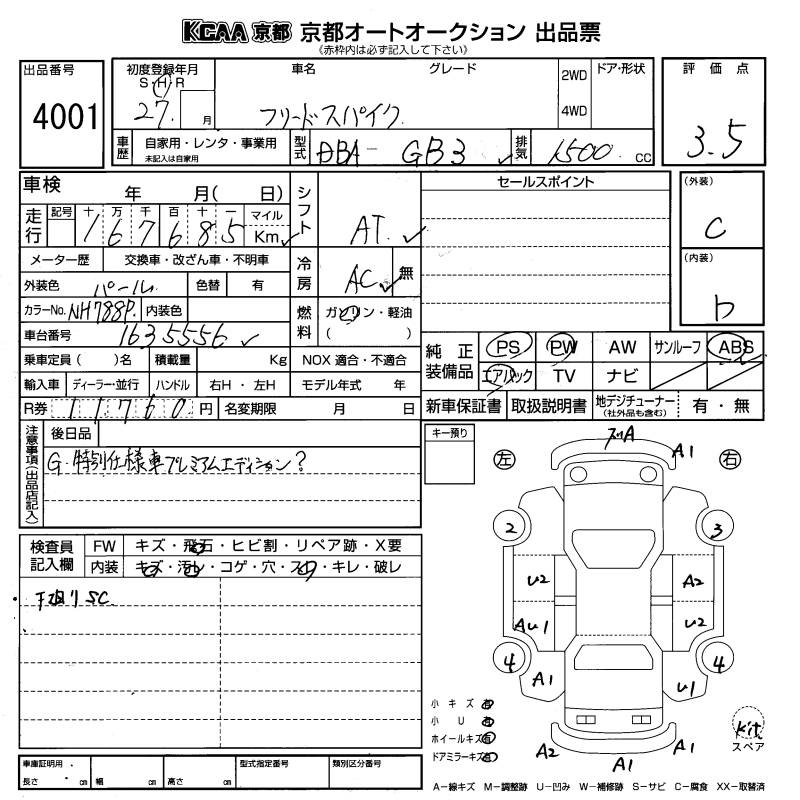 KCAA 京都 京都オートオークション 出品票
《赤枠内は必ず記入して下さい》
出品番号 4001
初度登録年月 S・H・R 27 月
車名 グレード フリードスパイク
2WD 4WD ドア・形状
評価点 3.5
車歴 自家用・レンタ・事業用 未記入は自家用
型式 DBA- GB3
排気 1500 CC
車検 年 月( 日)
シフト AT
セールスポイント
(外装) C
走行 記号 十万千百十一 マイル Km 167685
メーター歴 交換車・改ざん車・不明車
冷房 AC 無
(内装) b
外装色 パール 色替 有
カラーNo. NH788P 内装色
燃料 ガソリン・軽油 ( )
車台番号 1635556
乗車定員( )名 積載量 Kg NOX 適合・不適合
純正装備品 PS PW AW サンルーフ ABS
エアバック TV ナビ
輸入車 ディーラー・並行 ハンドル 右H・左H モデル年式 年
R券 11760 円 名変期限 月 日
新車保証書 取扱説明書 地デジチューナー (社外品も含む) 有・無
注意事項(出品店記入) 後日品
G・特別仕様車プレミアムエディション?
キー預り
左 右
A A1
2 3
U2 A2
AU1 U2
4 4
A1 U1
A2 A1 A1
検査員記入欄 FW キズ・飛石・ヒビ割・リペア跡・X要
内装 キズ・汚れ・コゲ・穴・スレ・キレ・破レ
下廻りSC
小キズ 有
小U 有
ホイールキズ 有
ドアミラーキズ 有
Kit スペア
車庫証明用・ 長さ cm 幅 cm 高さ cm
型式指定番号 類別区分番号
A−線キズ M−調整跡 U−凹み W−補修跡 S−サビ C−腐食 XX−取替済